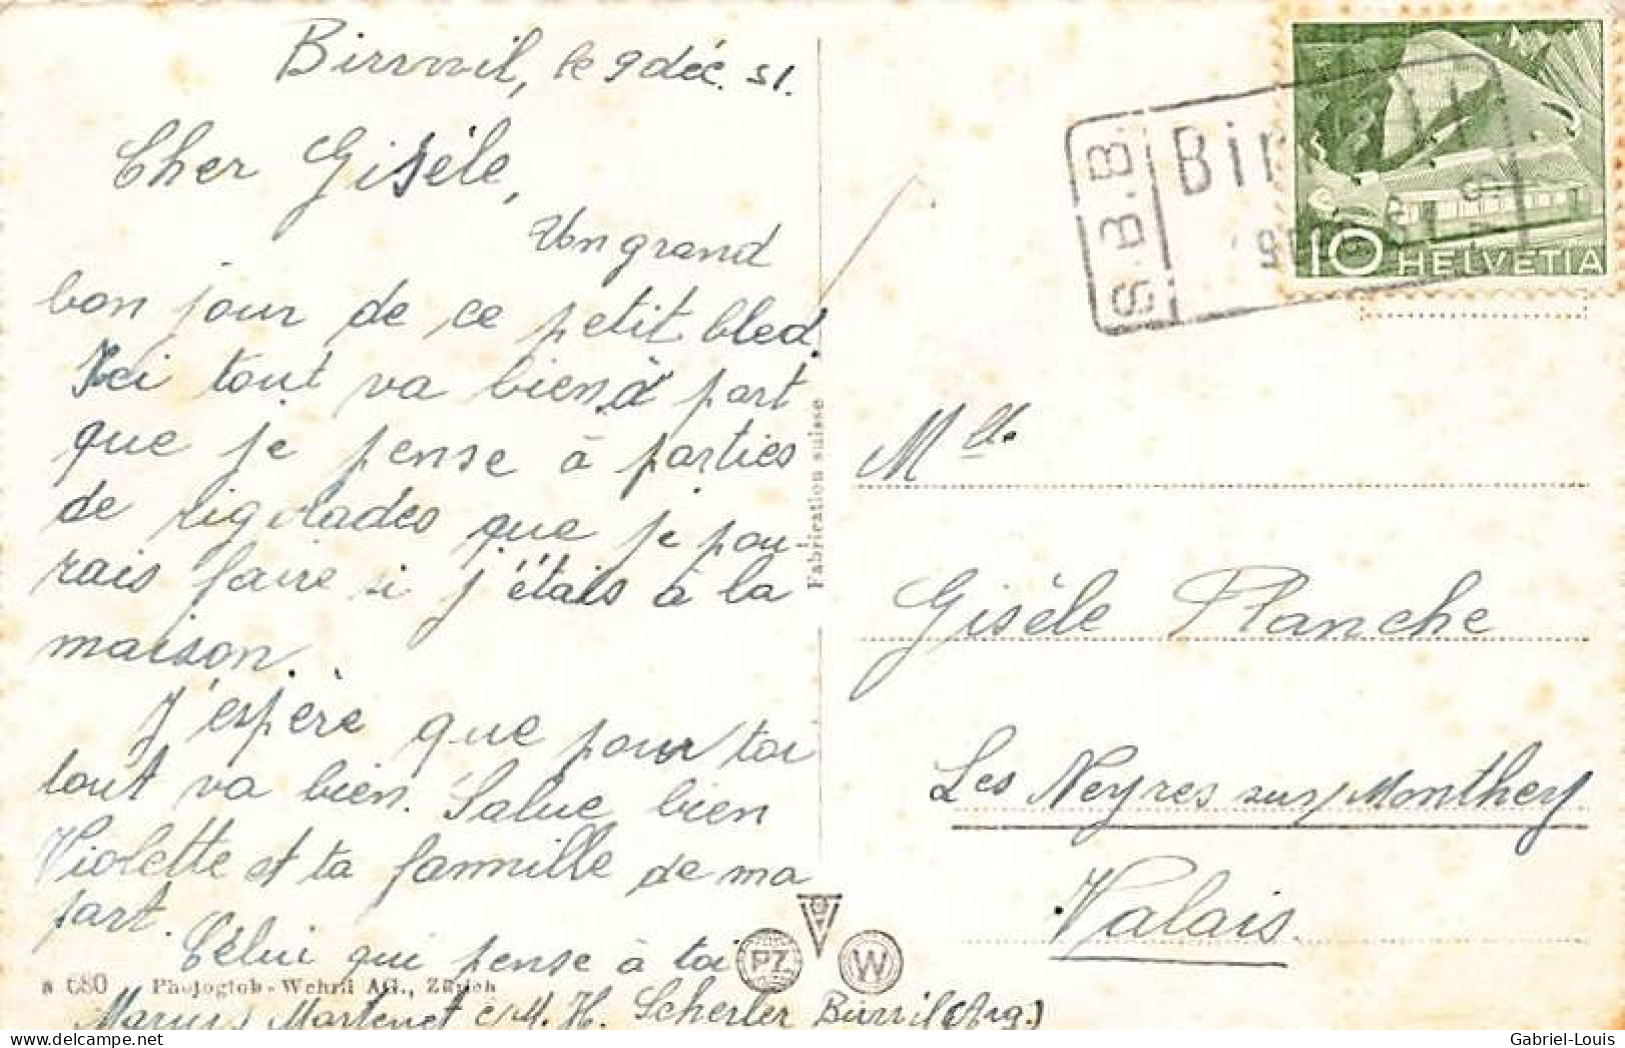 Birrwil, le 9 déc. 51.
Cher Gisèle,
Un grand
bon jour de ce petit bled
Ici tout va bien à part
que je pense à parties
de rigolades que je pou-
rais faire si j'étais à la
maison.
J'espère que pour toi
tout va bien. Salue bien
Violette et ta fammille de ma
part.
Célui qui pense à toi
Marius Martenet c/M. H. Scherler Birrwil (Arg.)
8 680 Photoglob-Wehrli AG., Zürich
Fabrication suisse
PZ
W
S.B.B.
Bir
10 HELVETIA
Mlle
Gisèle Planche
Les Neyres sur Monthey
Valais
Gabriel-Louis